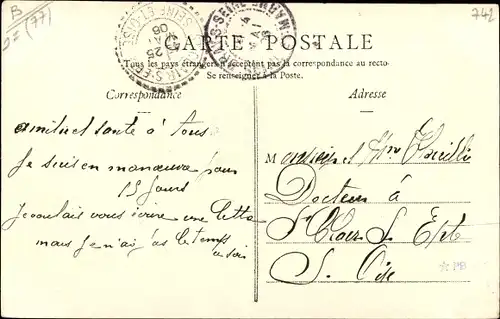 B
(77)
742
CARTE POSTALE
Tous les pays étrangers n'acceptent pas la correspondance au recto
Se renseigner à la Poste.
Correspondance
Adresse
SEINE-ET-OISE
25
08
amitié et santé à tous
Je suis en manœuvre pour
15 jours
Je voulais vous écrire une lettre
mais je n'ai pas le temps
ce soir
Monsieur et Mme
Docteur à
St Clair S. Epte
S. Oise
PB